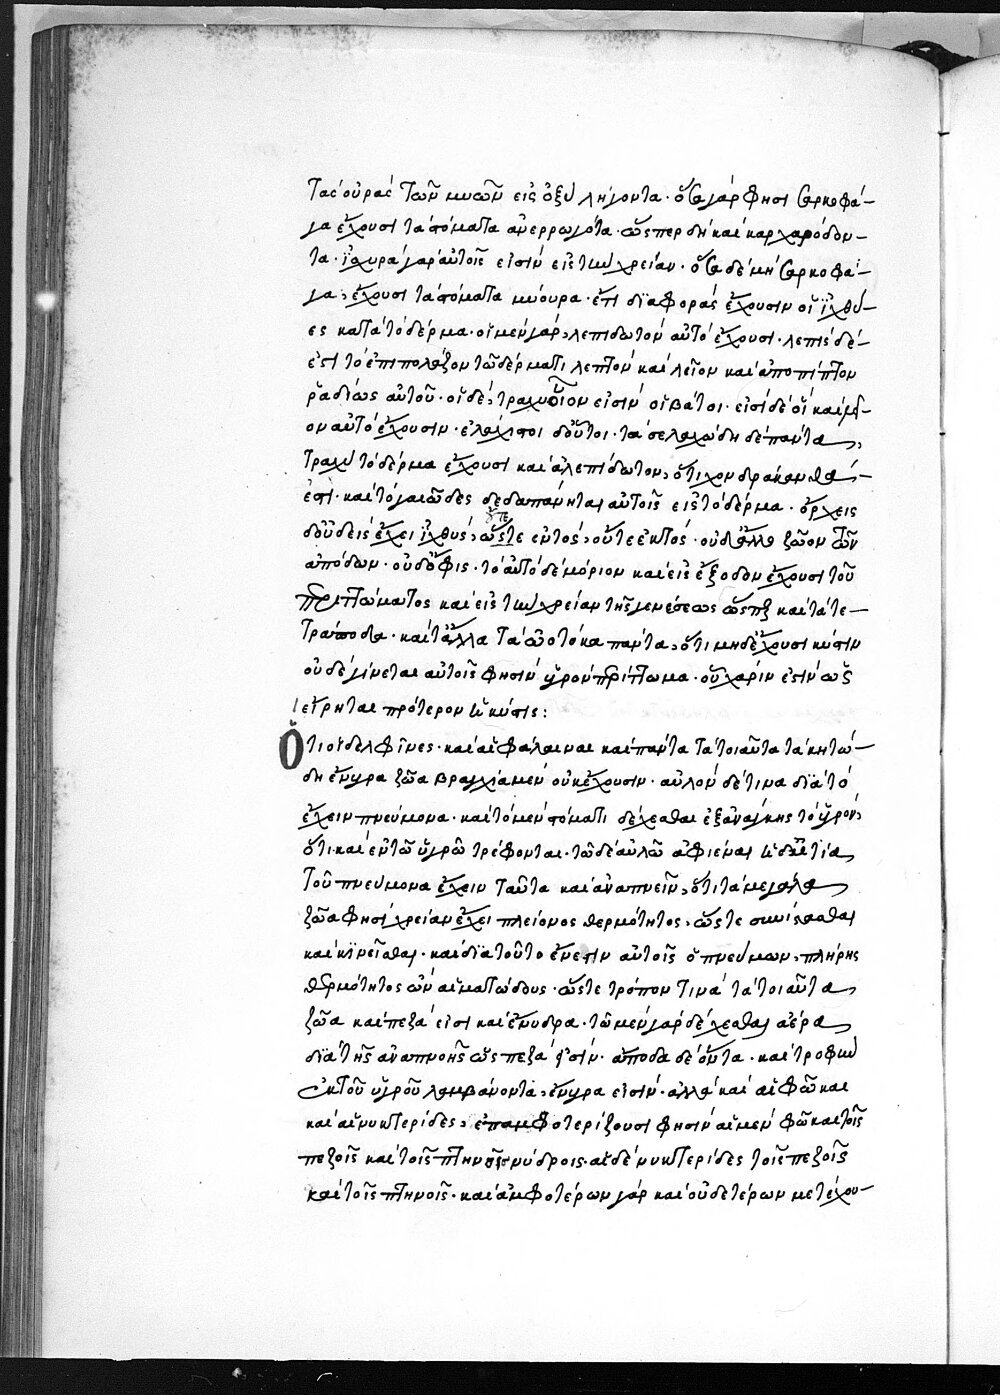 τὰς οὐρὰς τῶν μυῶν εἰς ὀξὺ λήγοντα· ὅσα γάρ φησι σαρκοφά-
γα ἔχουσι τὰ στόματα ἀνερρωγότα· ὥσπερ δὴ καὶ καρχαρόδον-
τα· ἰσχυρὰ γὰρ αὐτοῖς εἰσὶν εἰς τὴν χρείαν· ὅσα δὲ μὴ σαρκοφά-
γα, ἔχουσι τὰ στόματα μύουρα· ἔτι διαφορὰς ἔχουσιν οἱ ἰχθύ-
ες κατὰ τὸ δέρμα· οἱ μὲν γὰρ, λεπιδωτὸν αὐτὸ ἔχουσι· λεπὶς δέ-
ἐστι τὸ ἐπιπολάζον τῷ δέρματι λεπτὸν καὶ λεῖον καὶ ἀποπίπτον
ῥαδίως αὐτοῦ· οἱ δὲ, τραχὺ οἷον εἰσὶν οἱ βάτοι· εἰσὶ δὲ οἳ καὶ λεῖ-
ον αὐτὸ ἔχουσιν· ἐλάχιστοι δ' οὗτοι· τὰ σελαχώδη δὲ πάντα,
τραχὺ τὸ δέρμα ἔχουσι καὶ ἀλεπίδωτον, ὅτι χονδράκανθά-
ἐστι· καὶ τὸ γαιῶδες δεδαπάνηται αὐτοῖς εἰς τὸ δέρμα· ὄρχεις
δ' οὐδεὶς ἔχει ἰχθύς, οὔτε ἐντός, οὔτε ἐκτός· οὐδ' ἄλλο ζῶον τῶν
ἀπόδων· οὐδ' ὄφις· τὸ αὐτὸ δὲ μόριον καὶ εἰς ἔξοδον ἔχουσι τοῦ
περιττώματος καὶ εἰς τὴν χρείαν τῆς γενέσεως ὥσπερ καὶ τὰ τε-
τράποδα· καὶ τἄλλα τὰ ὠοτόκα πάντα, ὅτι μηδὲ ἔχουσι κύστιν
οὐδὲ γίνεται αὐτοῖς φησὶν ὑγρὸν περίττωμα· οὗ χάριν ἐστὶν ὡς
εἴρηται πρότερον ἡ κύστις:
Ὅτι οἱ δελφῖνες· καὶ αἱ φάλαιναι καὶ πάντα τὰ τοιαῦτα τὰ κητώ-
δη ἔνυγρα ζῶα βράγχια μὲν οὐκ ἔχουσιν· αὐλὸν δέ τινα διὰ τὸ
ἔχειν πνεύμονα· καὶ τὸ μὲν στόματι δέχεσθαι ἐξ ἀνάγκης τὸ ὑγρόν,
ὅτι καὶ ἐν τῷ ὑγρῷ τρέφονται· τῷ δὲ αὐλῷ ἀφιέναι ἡ δ' αἰτία
τοῦ πνεύμονα ἔχειν ταῦτα καὶ ἀναπνεῖν, ὅτι τὰ μεγάλα
ζῶα φησὶ χρείαν ἔχει πλείονος θερμότητος, ὥστε συνίστασθαι
καὶ κινεῖσθαι· καὶ διὰ τοῦτο ἔνεστιν αὐτοῖς ὁ πνεύμων, πλήρης
θερμότητος ὢν αἱματώδους· ὥστε τρόπον τινὰ τὰ τοιαῦτα
ζῶα καὶ πεζά εἰσι καὶ ἔνυδρα· τῷ μὲν γὰρ δέχεσθαι ἀέρα
διὰ τῆς ἀναπνοῆς ὡς πεζά εἰσίν· ἄποδα δὲ ὄντα· καὶ τροφὴν
ἐκ τοῦ ὑγροῦ λαμβάνοντα, ἔνυγρα εἰσίν· ἀλλὰ καὶ αἱ φῶκαι
καὶ αἱ νυκτερίδες, ἐπαμφοτερίζουσι φησὶν αἱ μὲν φῶκαι τοῖς
πεζοῖς καὶ τοῖς ἐνύδροις· αἱ δὲ νυκτερίδες τοῖς πεζοῖς
καὶ τοῖς πτηνοῖς· καὶ ἀμφοτέρων γὰρ καὶ οὐδετέρων μετέχου-